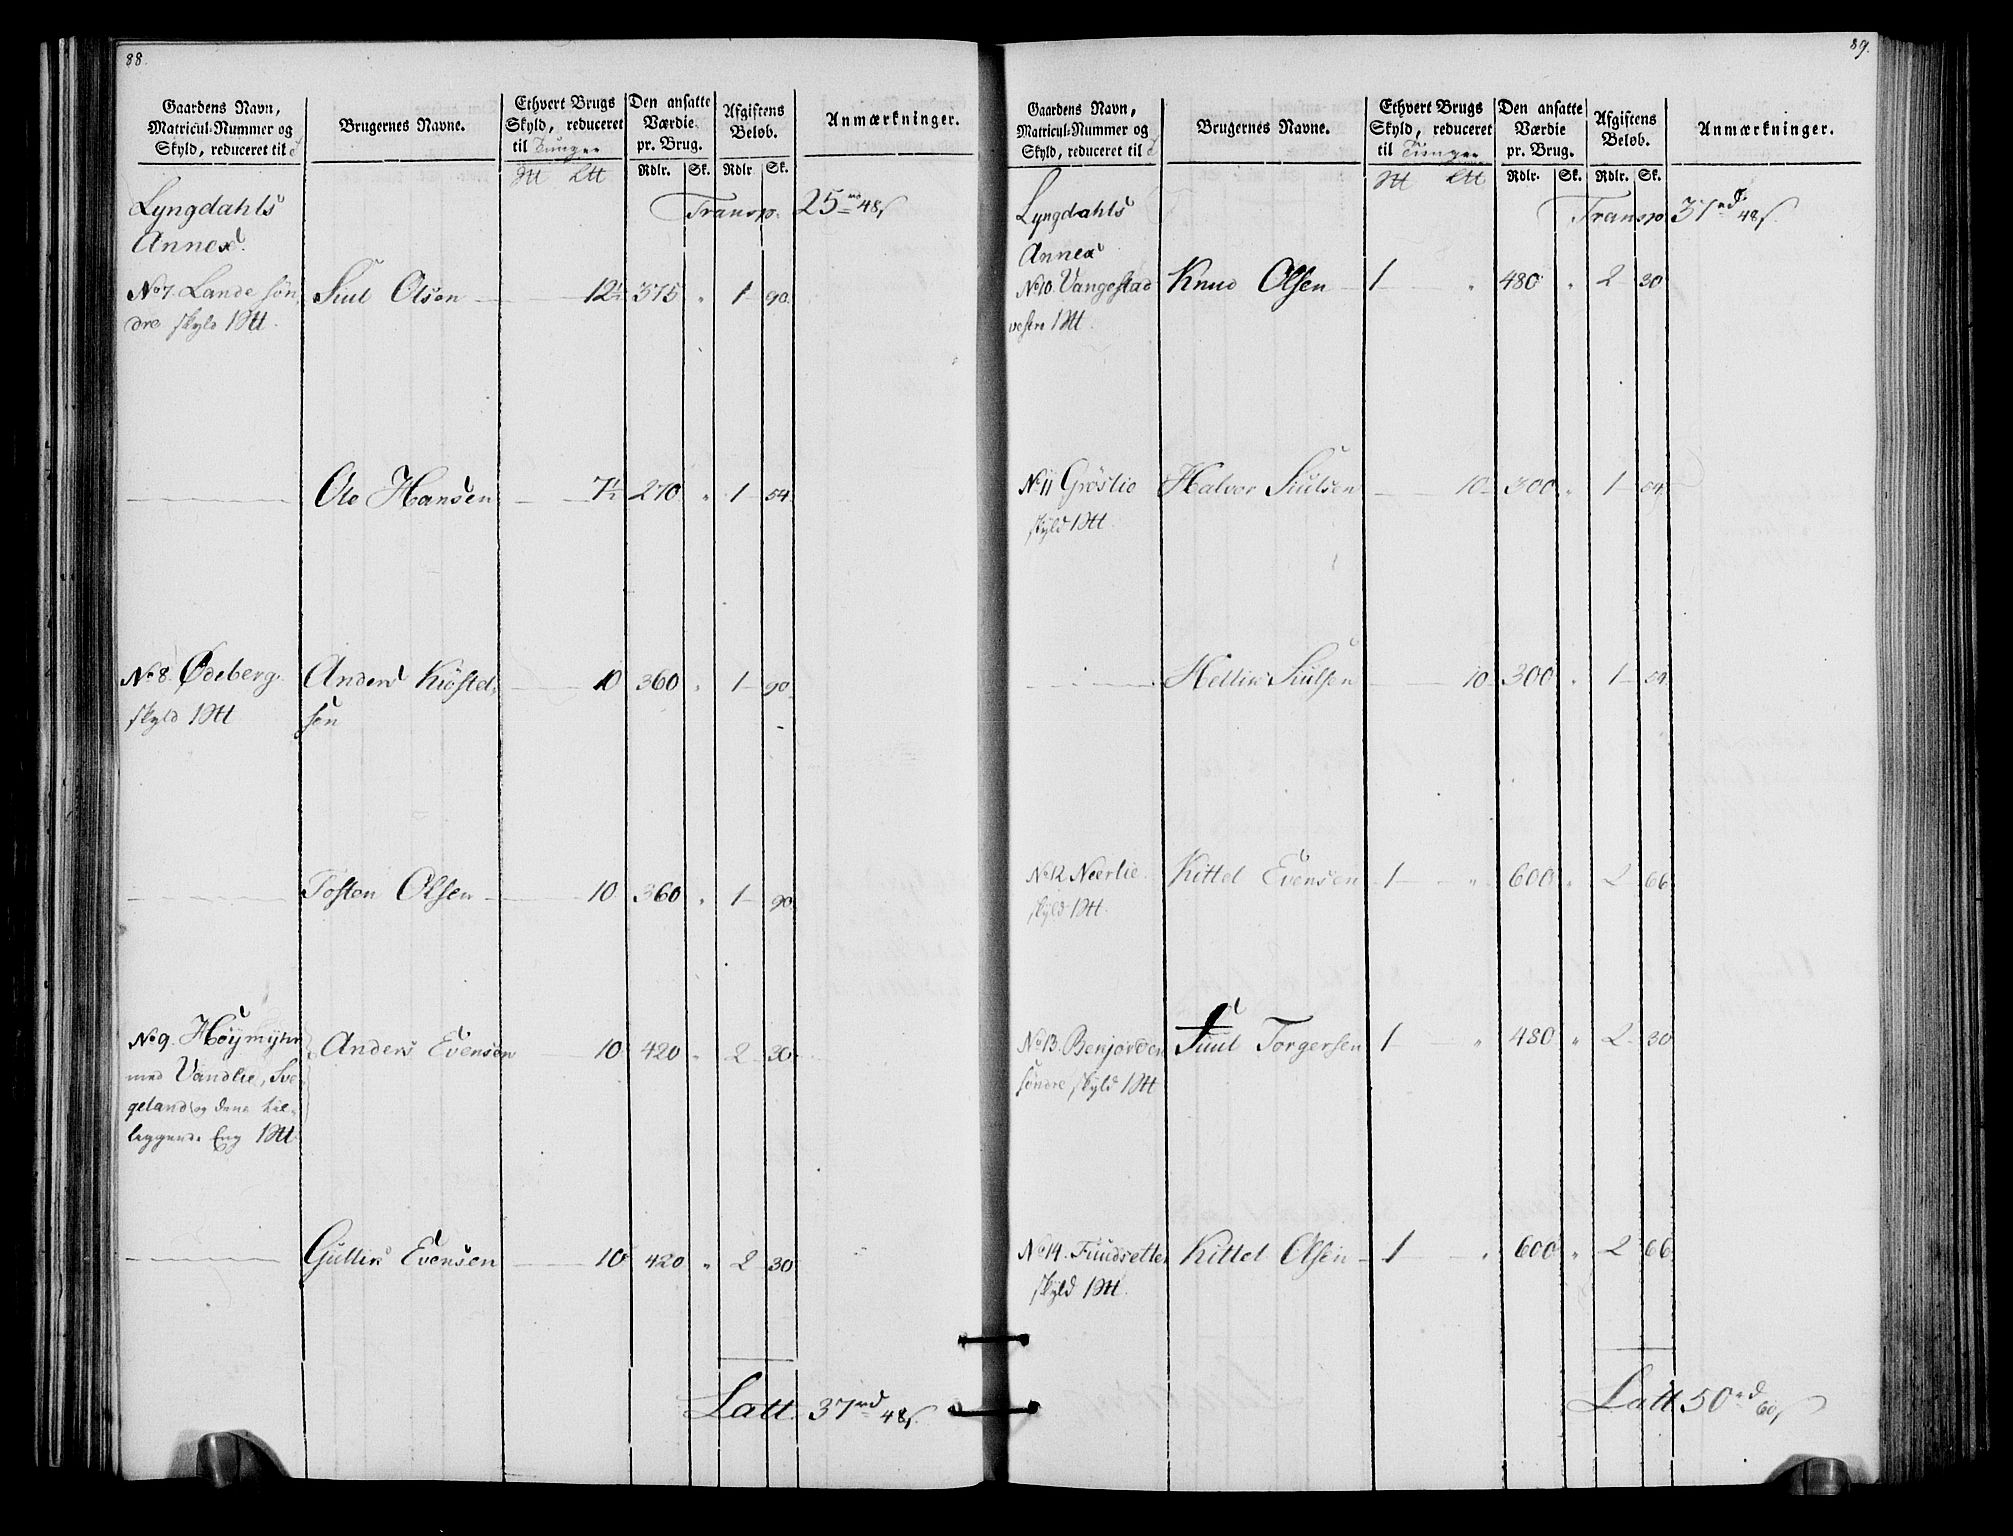 88.
Gaardens Navn, Matricul-Nummer og Skyld, reduceret til
Brugernes Navne.
Ethvert Brugs Skyld, reduceret til Tunger
Den ansatte Værdie pr. Brug.
Afgiftens Beløb.
Anmærkninger.
Rdlr. Sk. Rdlr Sk.
Lyngdahls Transp. 25 rd 48 s
Annex.
No 7. Lande søn Siul Olsen 12½ 375 " 1 90.
dre skyld 1 tt.
Ole Hansen 7½ 270 " 1 54.
No 8. Ødeberg. Anders Kiøstel 10 360 " 1 90
skyld 1 tt sen
Tosten Olsen 10 360 " 1 90.
No 9. Høymyhr Anders Evensen 10 420 " 2 30
med Vandlie, Sve-
geland og dens til-
leggende Eng 1 tt
Gullik Evensen 10 420 " 2 30
Latt. 37 rd 48 s
89.
Gaardens Navn, Matricul-Nummer og Skyld, reduceret til
Brugernes Navne.
Ethvert Brugs Skyld, reduceret til Tunger
Den ansatte Værdie pr. Brug.
Afgiftens Beløb.
Anmærkninger.
Rdlr. Sk. Rdlr. Sk.
Lyngdahls Transp 37 rd 48 s
Annex
No 10. Vangestad Knud Olsen 1 " 480 " 2 30
vestre 1 tt.
No 11 Grøslie Halvor Siulsen 10 300 " 1 54
skyld 1 tt.
Hellik Siulsen 10 300 " 1 54
No 12 Neerlie. Kittel Evensen 1 " 600 " 2 66
skyld 1 tt.
No 13. Benjorden Siul Torgersen 1 " 480 " 2 30
søndre skyld 1 tt
No 14. Fuudsetter Kittel Olsen 1 " 600 " 2 66
skyld 1 tt.
Latt 50 rd 60 s